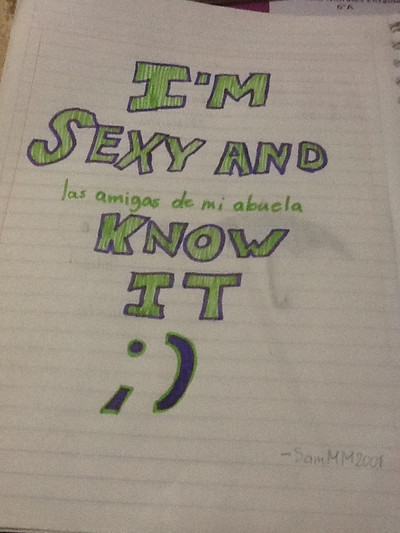 I'M
SEXY AND
las amigas de mi abuela
KNOW
IT
;)
-SamMM2001